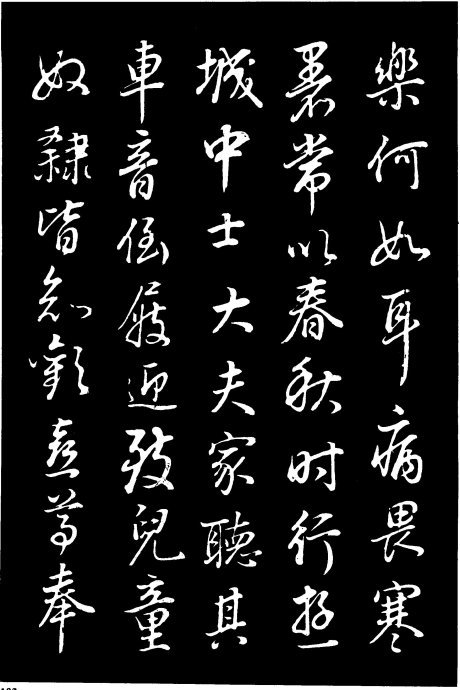 樂何如耳病畏寒
暑常以春秋时行遊
城中士大夫家聽其
車音倒屐迎致兒童
奴隸皆知歡喜尊奉